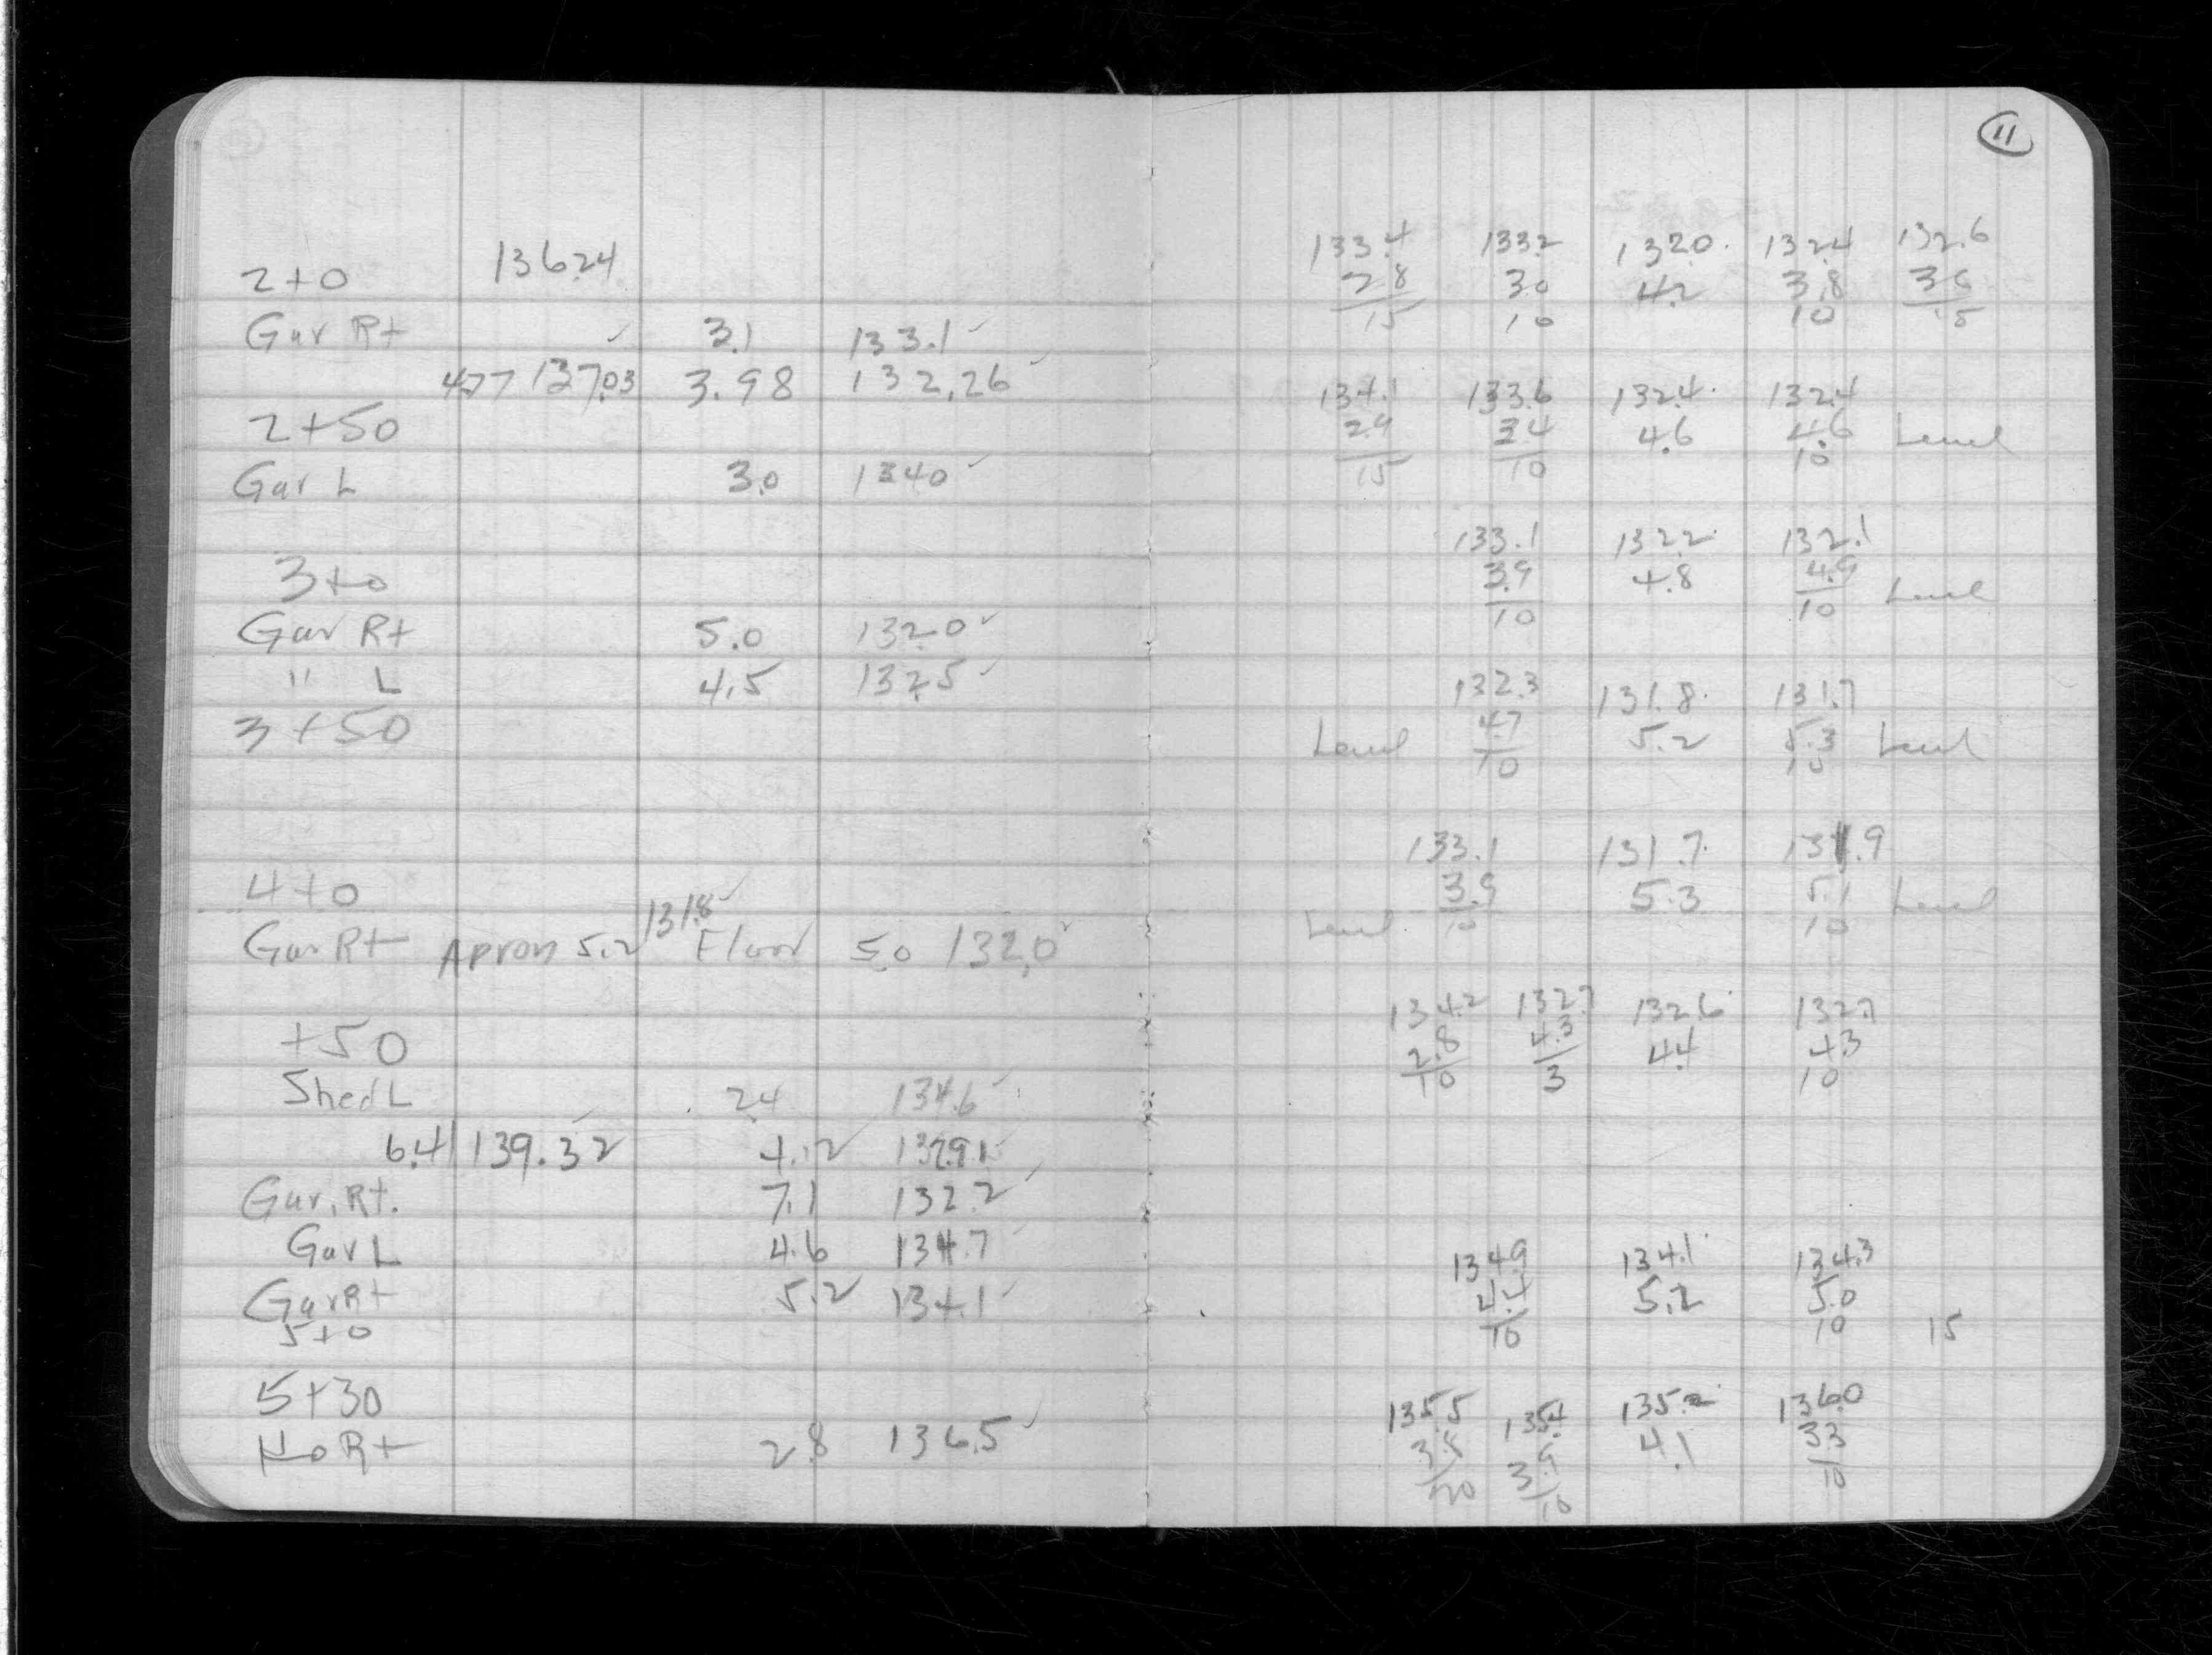 11
136.24
2+0
Gar Rt 3.1 133.1
4.77 137.03 3.98 132.26
2+50
Gar L 3.0 134.0
3+0
Gar Rt 5.0 132.0
" L 4.5 132.5
3+50
4+0
131.8
Gar Rt Apron 5.2 Floor 5.0 132.0
+50
Shed L 2.4 134.6
6.41 139.32 4.12 132.91
Gar. Rt. 7.1 132.2
Gar L 4.6 134.7
Gar Rt 5.2 134.1
5+0
5+30
Ho Rt 2.8 136.5
133.4 133.2 132.0 132.4 132.6
2.8 3.0 4.2 3.8 3.6
15 10 10 15
134.1 133.6 132.4 132.4
2.9 3.4 4.6 4.6 Level
15 10 10
133.1 132.2 132.1
3.9 4.8 4.9 Level
10 10
132.3 131.8 131.7
Level 4.7 5.2 5.3 Level
10 10
133.1 131.7 131.9
3.9 5.3 5.1 Level
Level 10 10
134.2 132.7 132.6 132.7
2.8 4.3 4.4 4.3
10 3 10
134.9 134.1 134.3
4.4 5.2 5.0
10 10 15
135.5 135.4 135.2 136.0
3.8 3.9 4.1 3.3
20 10 10